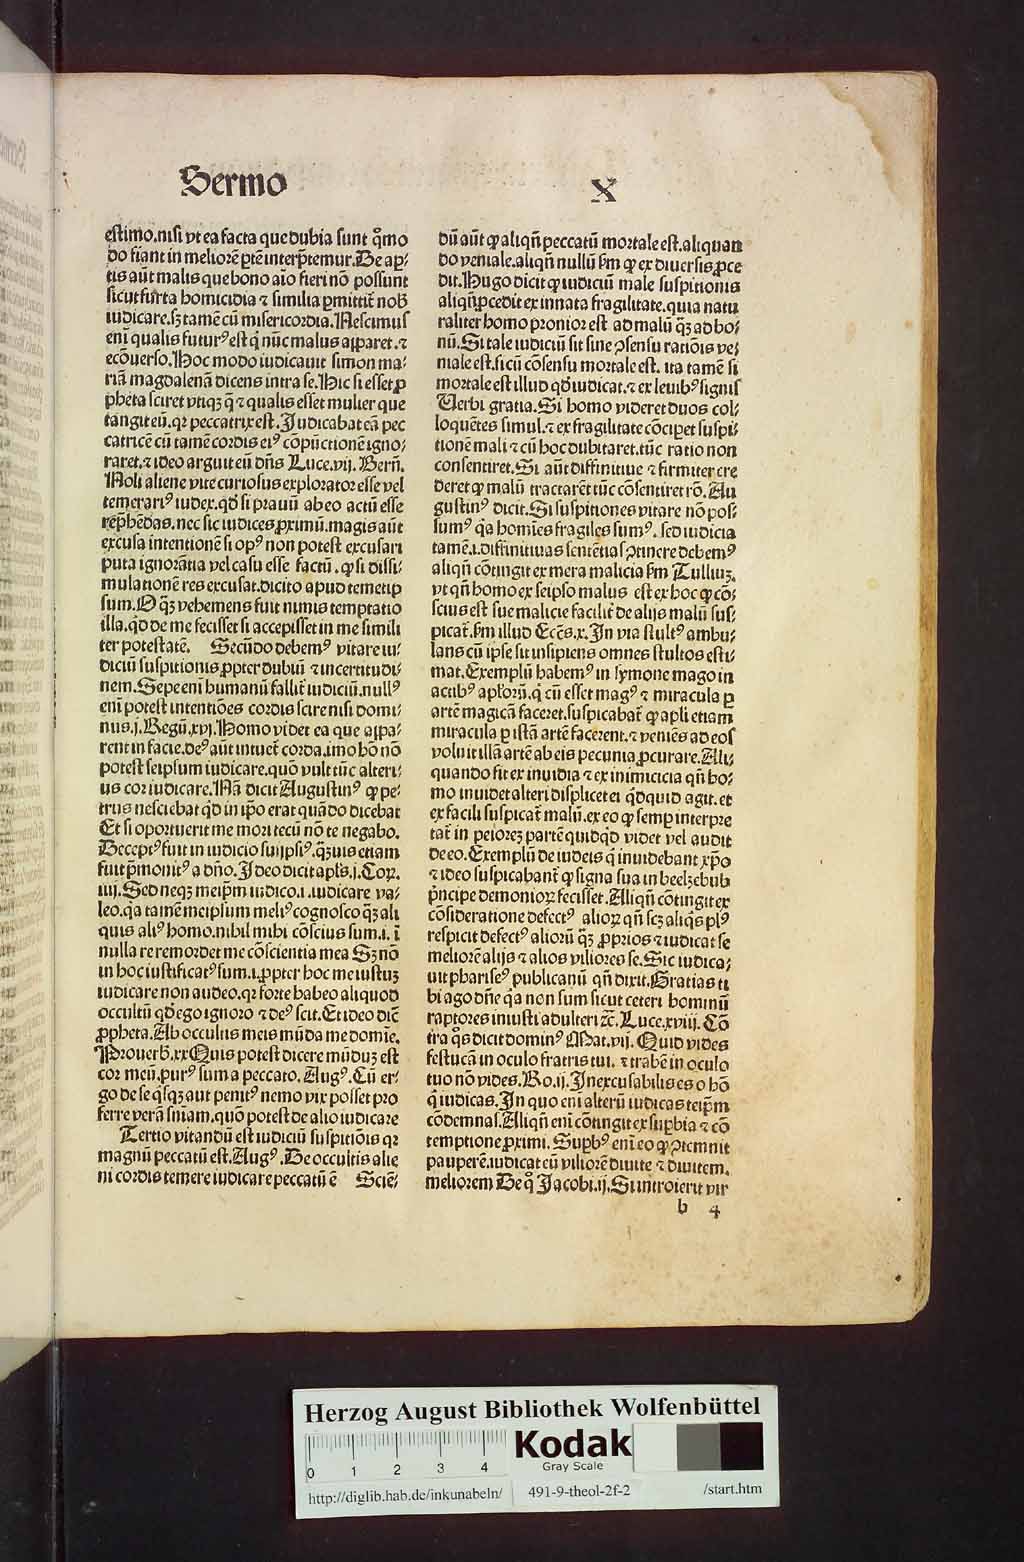 Sermo
X
estimo.nisi vt ea facta que dubia sunt q̊mo
do fiant in meliorē ꝑtē interp̄temur.De aꝑ⸗
tis aūt malis que bono aīo fieri nō possunt
sicut furta homicidia ⁊ similia ꝑmittit̄ nob̄
iudicare.sꝫ tamē cū misericordia.Nescimus
enī qualis futurꝰ est q̄ nūc malus apparet.⁊
ecōuerso.Hoc modo iudicauit simon ma⸗
riā magdalenā dicens intra se.Hic si esset ꝓ
pheta sciret vtiqꝫ q̄ ⁊ qualis esset mulier que
tangit eū.qꝛ peccatrix est.Iudicabat eā pec
catricē cū tamē cordis eiꝰ cōpūctionē igno⸗
raret.⁊ ideo arguit eū dn̄s Luce.vij.Bern̄.
Noli aliene vite curiosus explorator esse vel
temerariꝰ iudex.qd̓ si prauū ab eo actū esse
rep̄hēdas.nec sic iudices ꝓximū.magis aūt
excusa intentionē si opꝰ non potest excusari
puta ignorātia vel casu esse factū.ꝙ si dissi⸗
mulationē res excusat.dicito apud temetip
sum.O qꝫ vehemens fuit nimis temptatio
illa.qd̓ de me fecisset si accepisset in me simili
ter potestatē. Secūdo debemꝰ vitare iu⸗
diciū suspitionis ꝓpter dubiū ⁊ incertitudi⸗
nem.Sepe enī humanū fallit̄ iudiciū.nullꝰ
enī potest intentiōes cordis scire nisi domi⸗
nus.j.Regū.xvj.Homo videt ea que appa⸗
rent in facie.deꝰ aūt intuet̄ corda.imo hō nō
potest seipsum iudicare.quō vult tūc alteri⸗
us cor iudicare.Nā dicit Augustinꝰ ꝙ pe⸗
trus nesciebat qd̓ in ip̄o erat quādo dicebat
Et si oportuerit me mori tecū nō te negabo.
Deceptꝰ fuit in iudicio suijpsiꝰ.qꝫuis etiam
fuit p̄monitꝰ a dn̄o.Ideo dicit apl̓s.j.Coꝝ.
iiij.Sed neqꝫ meip̄m iudico.i.iudicare va⸗
leo.q̄a tamē meipsum meliꝰ cognosco qꝫ ali
quis aliꝰ homo.nihil mihi cōscius sum.i.ī
nulla re remordet me cōscientia mea Sꝫ nō
in hoc iustificatꝰ sum.i.ꝓpter hoc me iustuꝫ
iudicare non audeo.qꝛ forte habeo aliquod
occultū qd̓ ego ignoro ⁊ deꝰ scit.Et ideo dic̄
ꝓpheta.Ab occultis meis mūda me domīe.
Prouerb̄.xx Quis potest dicere mūduꝫ est
cor meū.purꝰ sum a peccato.Augꝰ.Cū er⸗
go de se q̄sqꝫ aut penitꝰ nemo vix posset pro
ferre verā sniam.quō potest de alio iudicare
Tertio vitandū est iudiciū suspitiōis qꝛ
magnū peccatū est.Augꝰ.De occultis alie
ni cordis temere iudicare peccatū ē Scie⸗
dū aūt ꝙ aliqn̄ peccatū mortale est.aliquan
do veniale.aliqn̄ nullū ẜm ꝙ ex diuersis ꝓce
dit.Hugo dicit ꝙ iudiciū male suspitionis
aliqn̄ ꝓcedit ex innata fragilitate.quia natu
raliter homo pronior est ad malū qꝫ ad bo⸗
nū.Si tale iudiciū sit sine ꝯsensu ratiōis ve⸗
niale est.si cū cōsensu mortale est. ita tamē si
mortale est illud qd̓ iudicat.⁊ ex leuibꝰ signis
Uerbi gratia.Si homo videret duos col⸗
loquētes simul.⁊ ex fragilitate cōciꝑet suspi⸗
tionē mali ⁊ cū hoc dubitaret.tūc ratio non
consentiret.Si aūt diffinitiue ⁊ firmiter cre
deret ꝙ malū tractarēt tūc cōsentiret rō.Au
gustinꝰ dicit.Si suspitiones vitare nō pos⸗
sumꝰ q̄a homīes fragiles sumꝰ.sed iudicia
tamē.i.diffinitiuas sententias ꝯtinere debemꝰ
aliqn̄ cōtingit ex mera malicia ẜm Tulliuꝫ.
vt qn̄ homo ex seipso malus est ex hoc ꝙ cō⸗
scius est sue malicie facilit̄ de alijs malū sus⸗
picat̄.ẜm illud Eccs̄.x.In via stultꝰ ambu⸗
lans cū ipse sit insipiens omnes stultos esti⸗
mat.Exemplū habemꝰ in symone mago in
actibꝰ apl̓oꝝ.q̄ cū esset magꝰ ⁊ miracula ꝑ
artē magicā faceret.suspicabat̄ ꝙ apl̓i etiam
miracula ꝑ istā artē facerent.⁊ veniēs ad eos
voluit illā artē ab eis pecunia ꝓcurare.Ali⸗
quando fit ex inuidia ⁊ ex inimicicia qn̄ ho⸗
mo inuidet alteri displicet ei qd̓quid agit.et
ex facili suspicat̄ malū.ex eo ꝙ semp interpre
tat̄ in peioreꝫ partē quidqd̓ videt vel audit
de eo.Exemplū de iudeis q̄ inuidebant xp̄o
⁊ ideo suspicabant̄ ꝙ signa sua in beelzebub
p̄ncipe demonioꝝ fecisset.Aliqn̄ cōtingit ex
cōsideratione defectꝰ alioꝝ qn̄ scꝫ aliqs̄ plꝰ
respicit defectꝰ aliorū qꝫ ꝓprios ⁊ iudicat se
meliorē alijs ⁊ alios viliores se.Sic iudica⸗
uit phariseꝰ publicanū qn̄ dixit.Gratias ti
bi ago dn̄e q̄a non sum sicut ceteri hominū
raptores iniusti adulteri ⁊c̄.Luce.xviij.Cō
tra q̊s dicit dominꝰ Mat.vij.Quid vides
festucā in oculo fratris tui. ⁊ trabē in oculo
tuo nō vides.Ro.ij.Inexcusabilis es o hō
q̄ iudicas.In quo enī alterū iudicas teip̄m
cōdemnas.Aliqn̄ enī cōtingit ex suꝑbia ⁊ cō
temptione ꝓximi. Suꝑbꝰ enī eo ꝙ ꝯtemnit
pauperē.iudicat eū viliorē diuite ⁊ diuitem.
meliorem De q̊ Jacobi.ij.Si introierit vir
b 4
Herzog August Bibliothek Wolfenbüttel
Kodak
Gray Scale
0 1 2 3 4
http://diglib.hab.de/inkunabeln/ 491-9-theol-2f-2 /start.htm